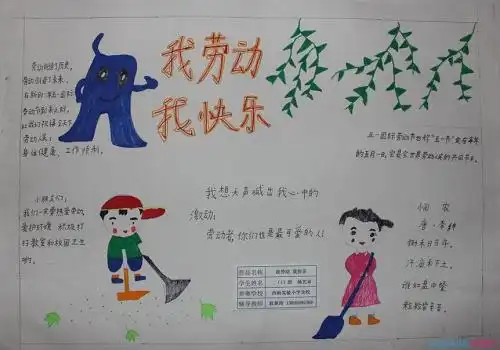 我劳动
我快乐
劳动创造历史,
劳动创造未来。
在新的
劳动节到来之际,
让我们祝福全天下
劳动人民:
身体健康、工作顺利。
五一国际劳动节亦称"五一节"定在每年
的五月一日。它是全世界劳动人民的共同节日。
小朋友们:
我们一定要热爱劳动,
爱护环境 积极打
扫教室和校园卫生
哟。
我想大声喊出我心中的
激动:
劳动者,你们也是最可爱的人!
悯 农
唐·李绅
锄禾日当午,
汗滴禾下土。
谁知盘中餐
粒粒皆辛苦。
作品名称 我劳动 我快乐
学生姓名
参赛学校 实验小学
辅导教师